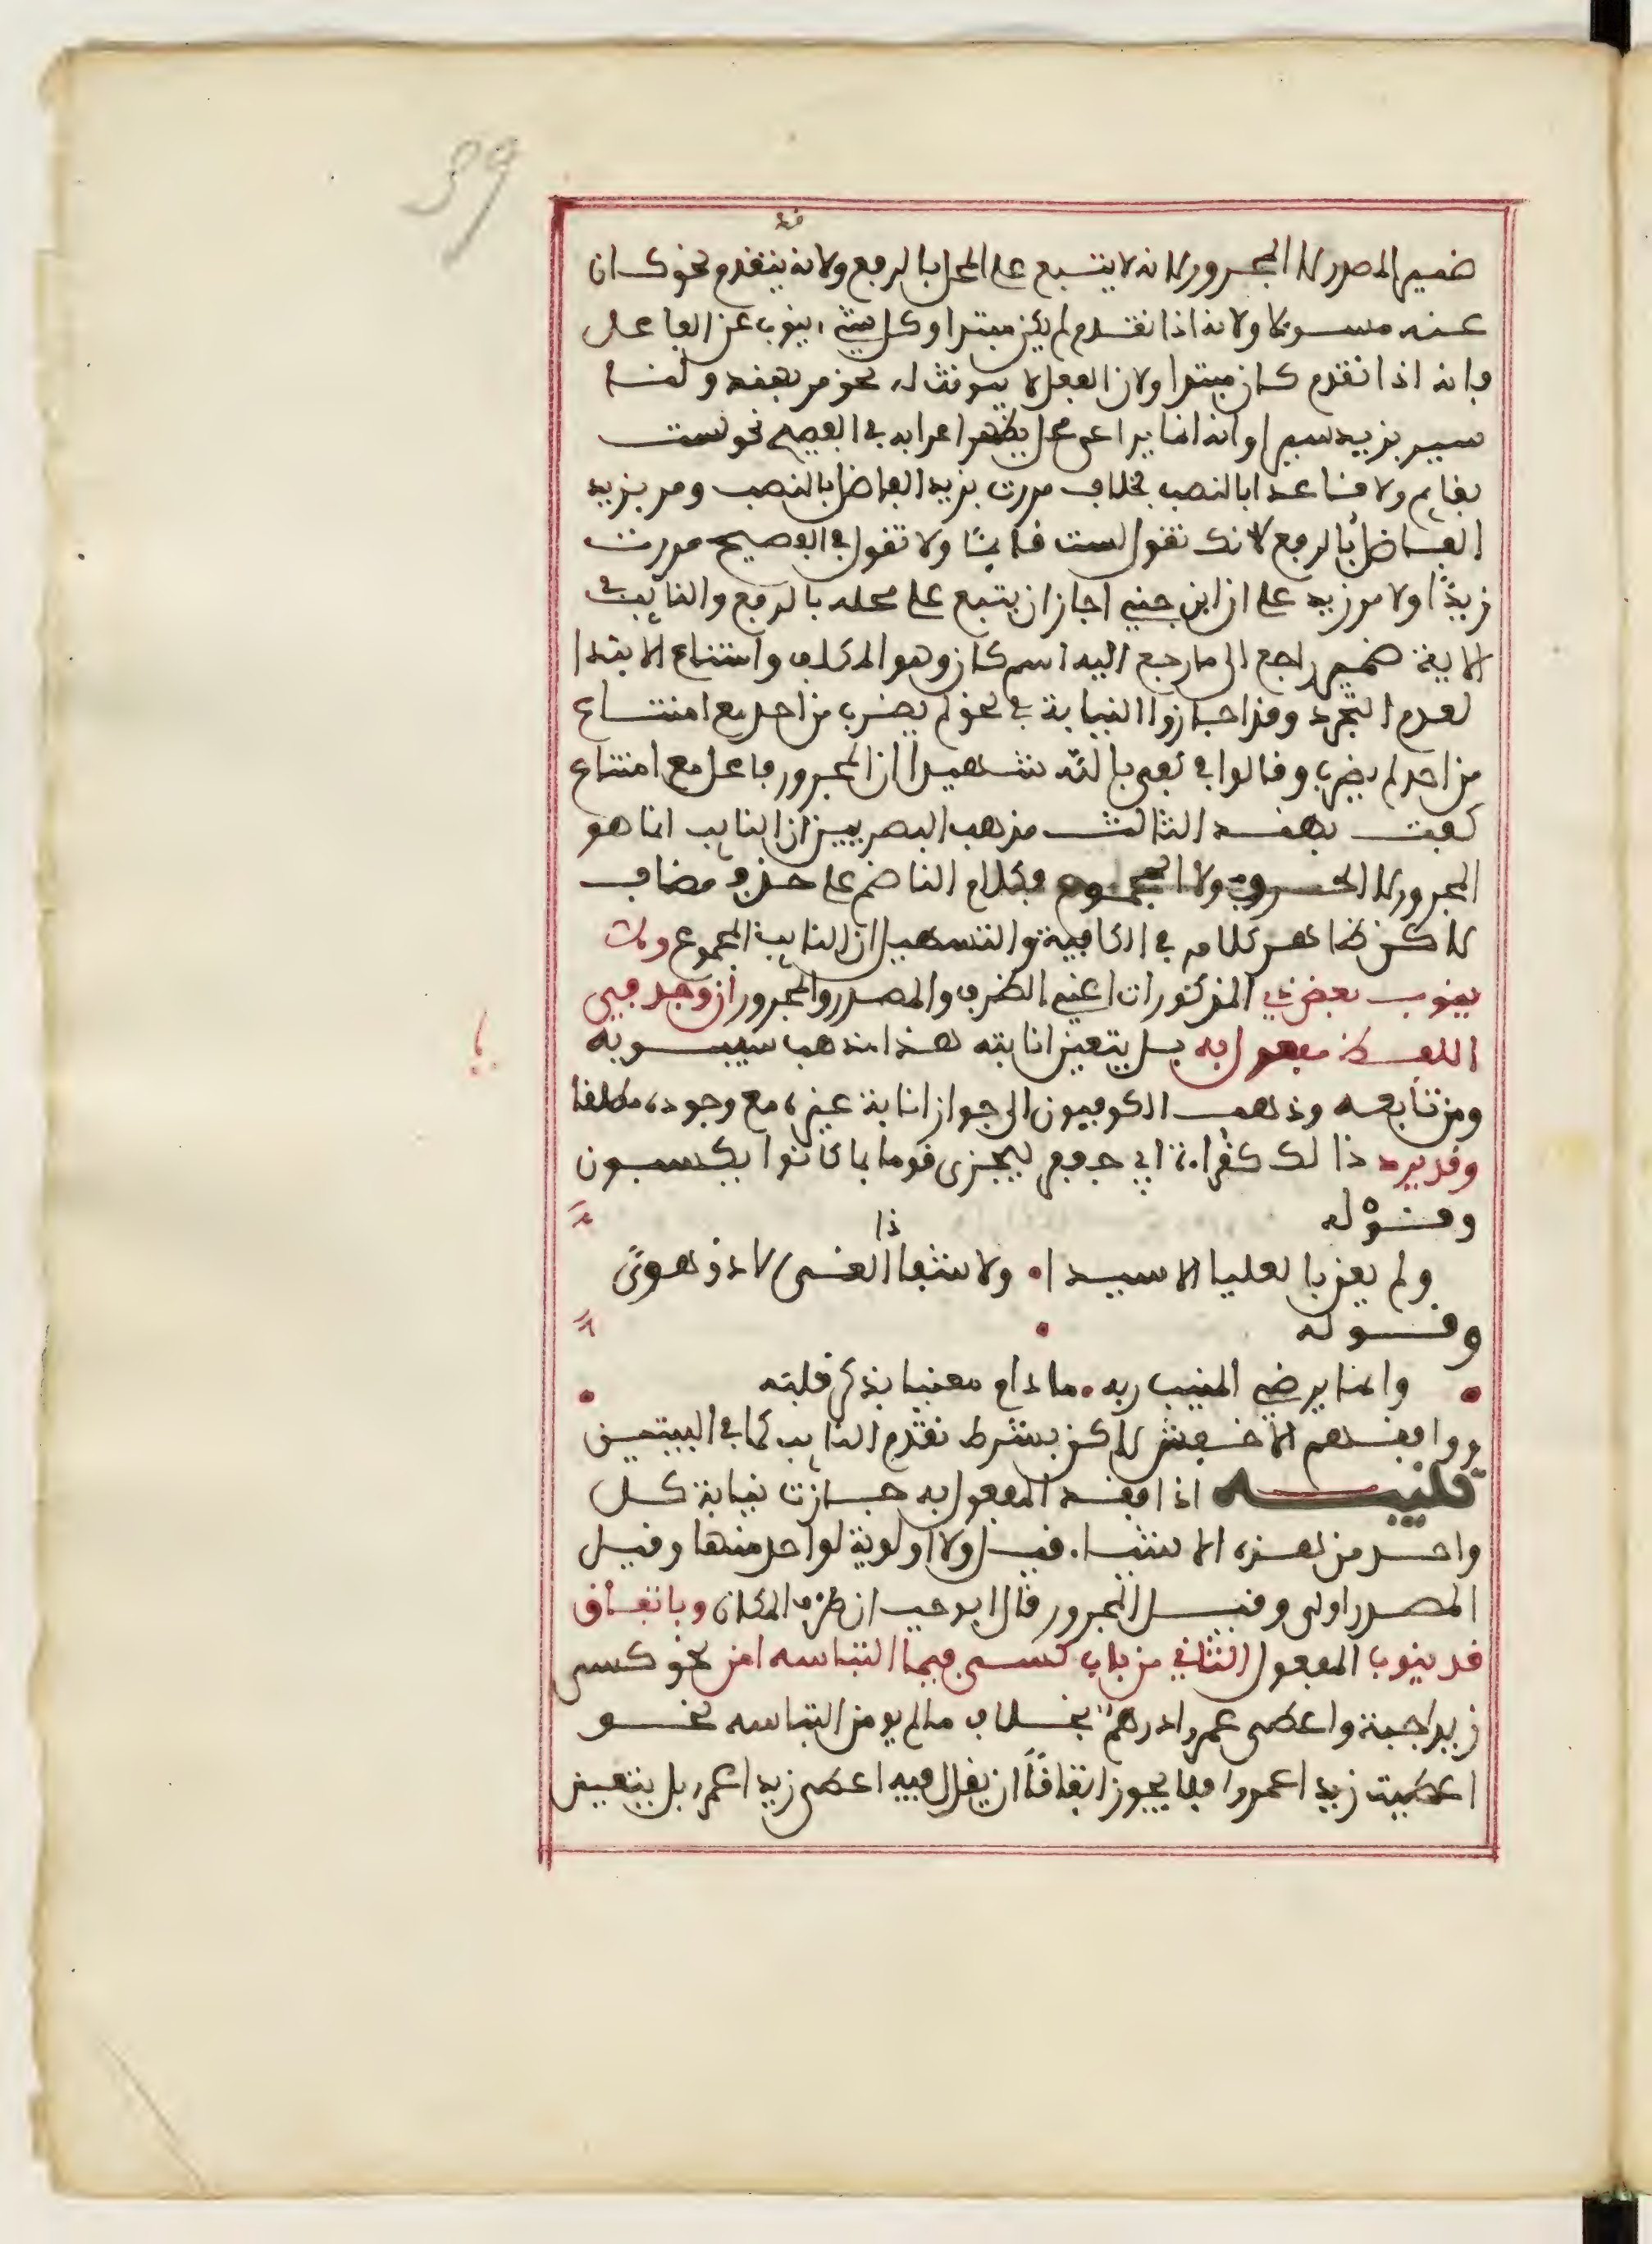 39
ضمير المصدر لا المجرور لانه لا يتبع على المحل بالرفع ولانه يتقدم نحو كان
عنه مسولا ولانه اذا تقدم لم يكن مبتدا وكل شيء ينوب عن الفاعل
فانه اذا تقدم كان مبتدا ولان الفعل لا يونث له نحو مر بهند ولنا
سير بزيد سيرا وانه انما يراعى محل يظهر اعرابه في الفصيح نحو لست
بقايم ولا قاعدا بالنصب بخلاف مررت بزيد الفاضل بالنصب ومر بزيد
الفاضل بالرفع لانك تقول لست قايما ولا تقول في الفصيح مررت
زيدا ولا مر زيد على ان ابن جني اجاز ان يتبع على محله بالرفع والنايب في
الاية ضمير راجع الى ما رجع اليه اسم كان وهو المكلف وامتناع الابتدا
لعدم التجرد وقد اجازوا النيابة في نحو لم يضرب من احد مع امتناع
من احد لم يضرب وقالوا في كفى بالله شهيدا ان المجرور فاعل مع امتناع
كفت بهند الثالث مذهب البصريين ان النايب انما هو
المجرور لا الحرف ولا المجموع فكلام الناضم على حذف مضاف
لاكن ظاهر كلامه في الكافية والتسهيل ان النايب المجموع ولا
ينوب بعض هذي المذكورات اعني الظرف والمصدر والمجرور ان وجد في
اللفظ مفعول به بل يتعين انابته هذا مذهب سيبويه
ومن تابعه وذهب الكوفيون الى جواز انابة غيره مع وجوده مطلقا
وقد يرد ذالك كقراءة ابي جعفر ليجزى قوما بما كانوا يكسبون
وقوله
ولم يعن بالعليا الا سيدا ولا شفا ذا الغي الا ذو هدى
وقوله
وانما يرضي المنيب ربه ما دام معنيا بذكر قلبه
ووافقهم الاخفش لاكن بشرط تقدم النايب كما في البيتين
تنبيه اذا فقد المفعول به جازت نيابة كل
واحد من هذه الاشيا قيل ولا اولوية لواحد منها وقيل
المصدر اولى وقيل المجرور قال ابو حيان ظرف المكان وباتفاق
قد ينوب المفعول الثاني من باب كسى فيما التباسه امن نحو كسي
زيدا جبة واعطي عمرا درهم بخلاف ما لم يومن التباسه نحو
اعطيت زيدا عمروا فلا يجوز اتفاقا ان يقال فيه اعطي زيدا عمر بل يتعين